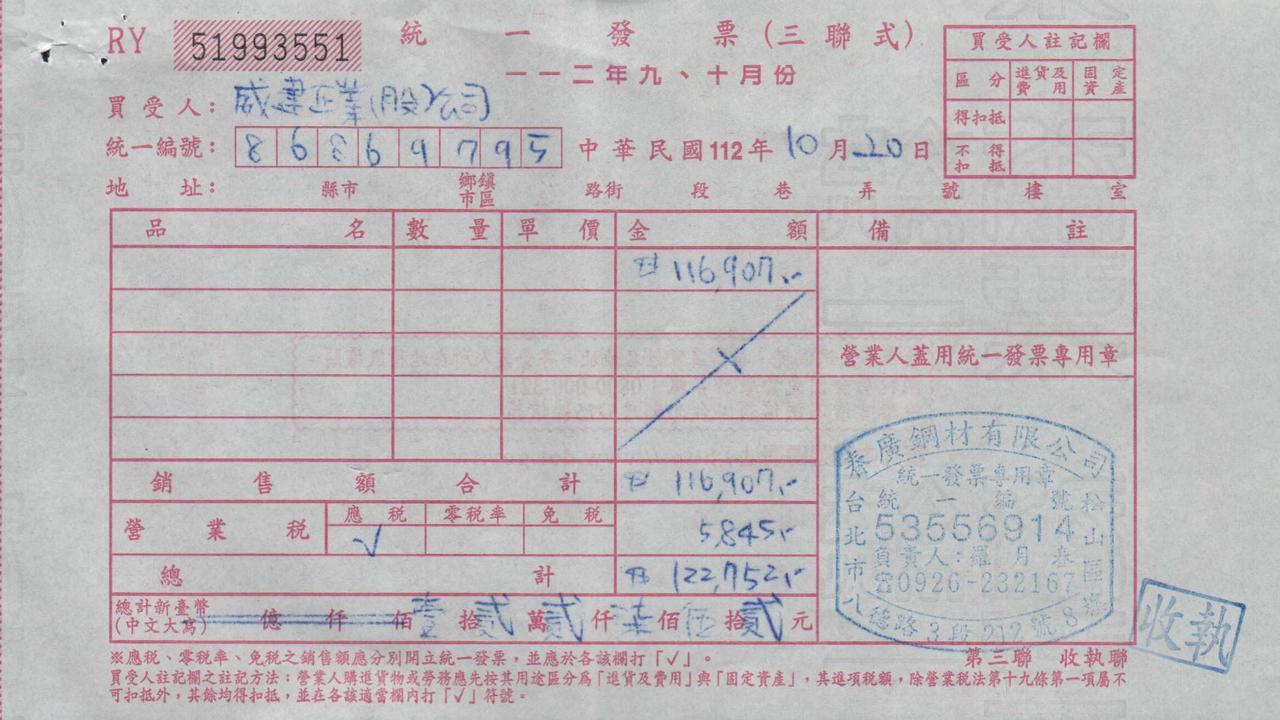 RY 51993551 統一發票(三聯式)
一一二年九、十月份
買受人註記欄
區分 進貨及費用 固定資產
得扣抵
不得扣抵
買受人: 威建企業(股)公司
統一編號: 86869795 中華民國112年10月20日
地址: 縣市 鄉鎮市區 路街 段 巷 弄 號 樓 室
品名 數量 單價 金額 備註
116,907.-
營業人蓋用統一發票專用章
銷售額合計 116,907.-
營業稅 應稅 零稅率 免稅
√ 5,845.-
總計 122,752.-
總計新臺幣
(中文大寫) 億 仟 佰壹拾貳萬貳仟柒佰伍拾貳元
廣鋼材有限公司
統一發票專用章
統一編號
53556914
負責人:羅月
☎0926-232167
台北市松山區八德路3段212號8
收執
第三聯 收執聯
※應稅、零稅率、免稅之銷售額應分別開立統一發票,並應於各該欄打「√」。
買受人註記欄之註記方法:營業人購進貨物或勞務應先按其用途區分為「進貨及費用」與「固定資產」,其進項稅額,除營業稅法第十九條第一項屬不
可扣抵外,其餘均得扣抵,並在各該適當欄內打「√」符號。